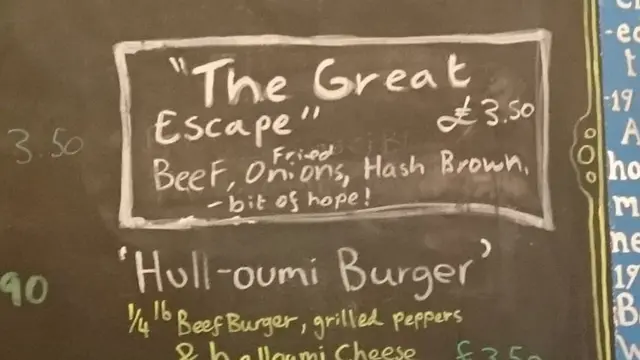 "The Great
Escape" £3.50
3.50
Fried
Beef, Onions, Hash Brown,
- bit of hope!
'Hull-oumi Burger'
90
1/4 lb Beef Burger, grilled peppers
& halloumi Cheese £3.50
-19
19